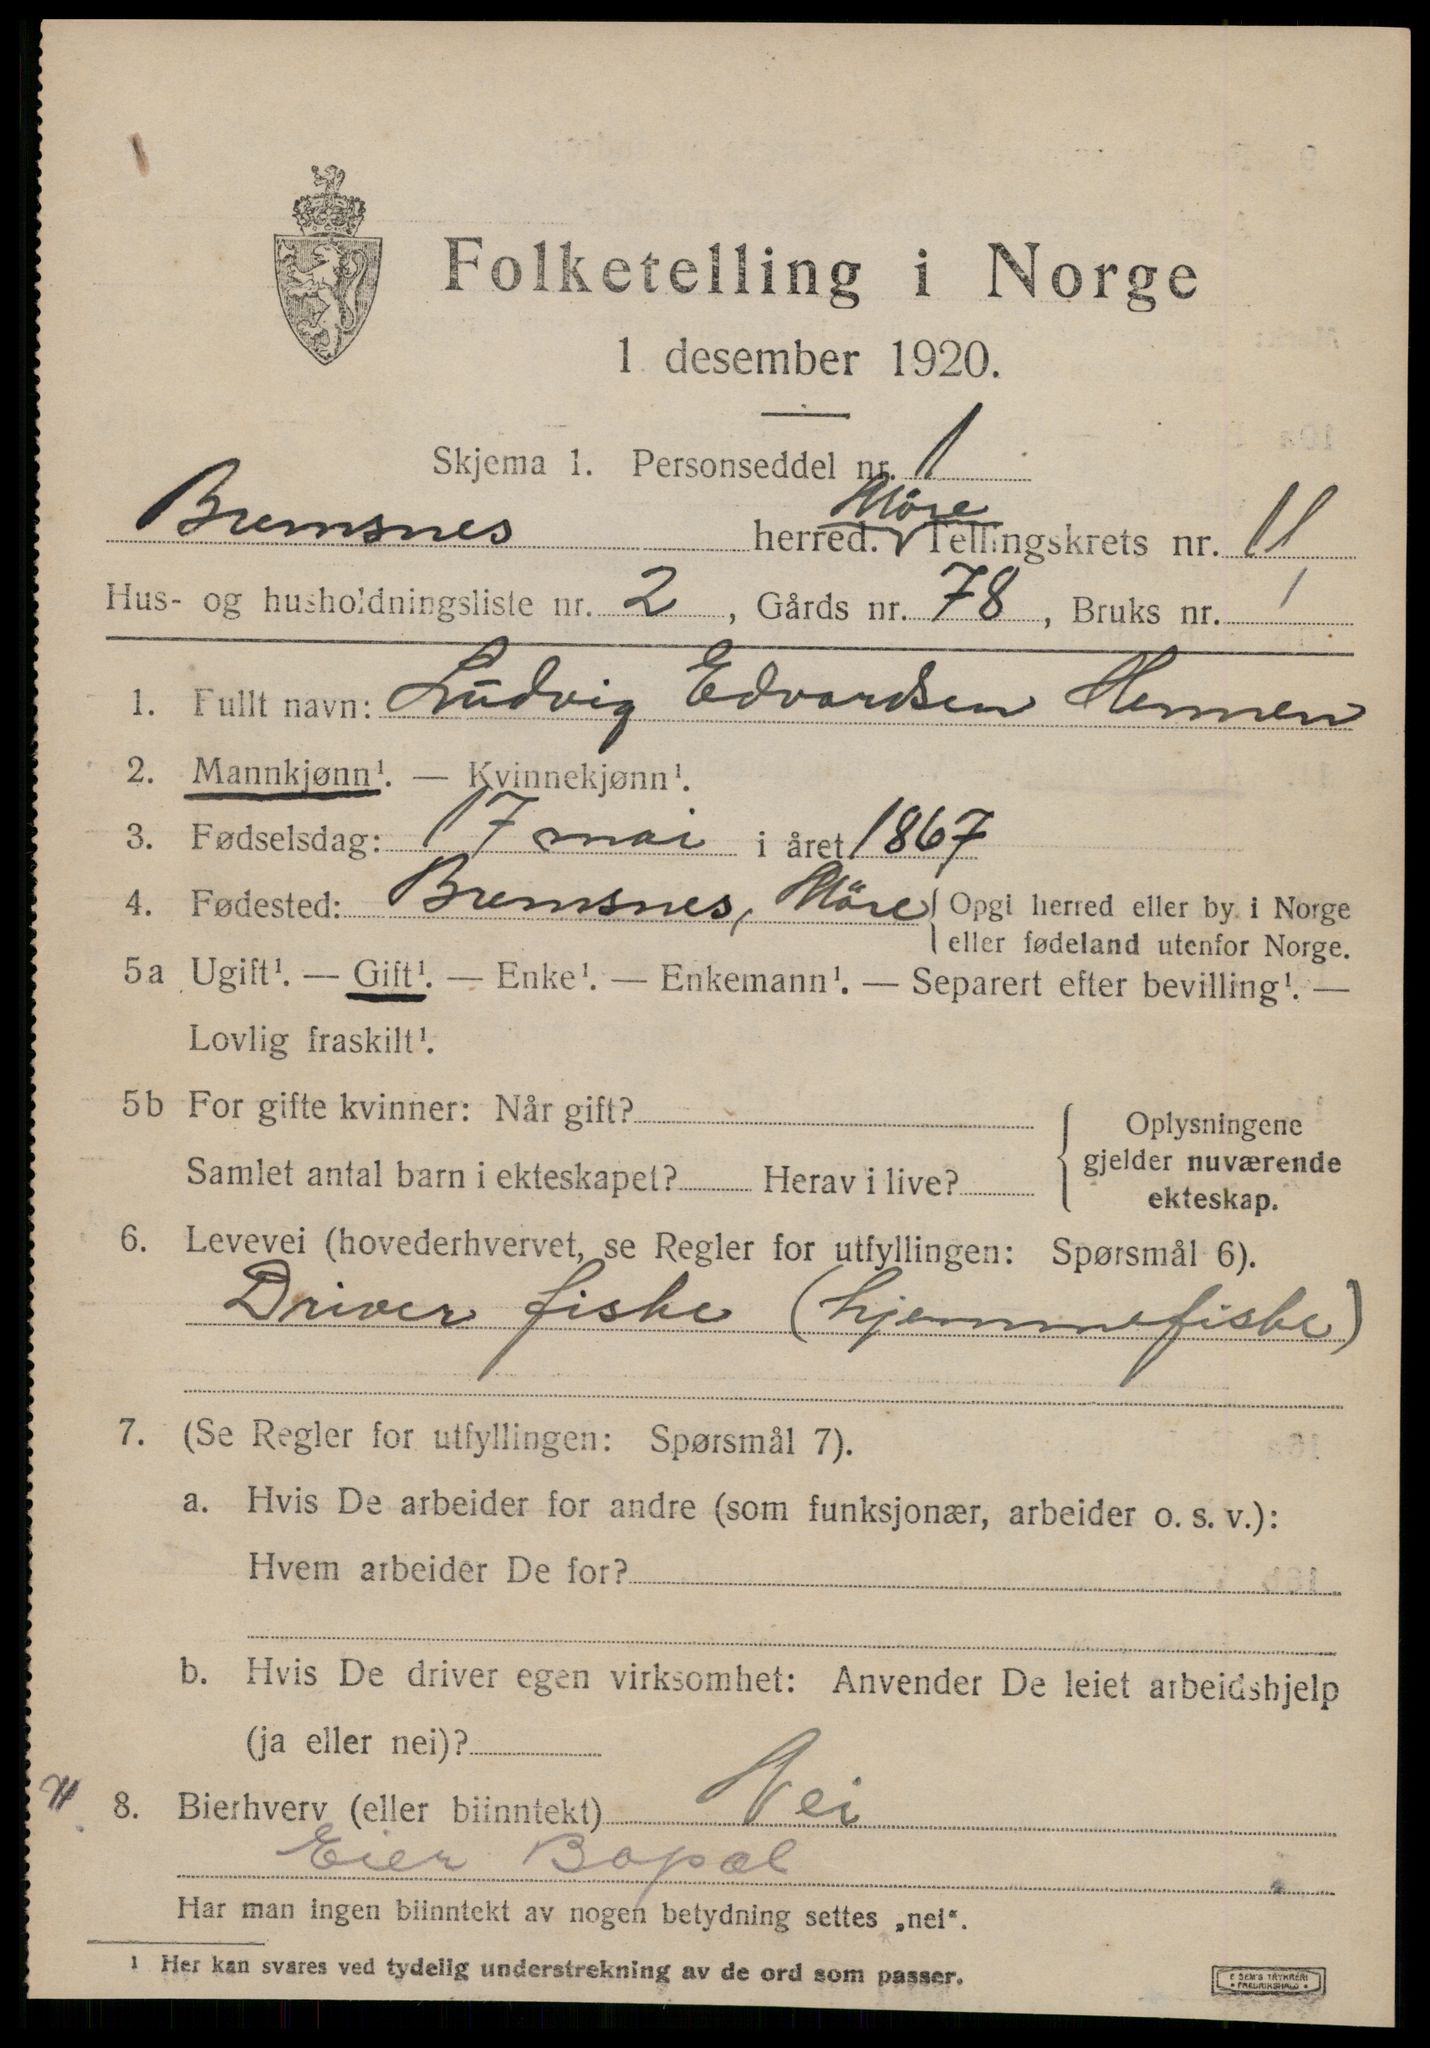 Folketelling i Norge
1 desember 1920.
Skjema 1. Personseddel nr. 1
Bremsnes herred. Möre Tellingskrets nr. 11
Hus- og husholdningsliste nr. 2, Gårds nr. 78, Bruks nr. 1
1. Fullt navn: Ludvig Edvardsen
2. Mannkjønn¹. — Kvinnekjønn¹.
3. Fødselsdag: 17 mai i året 1867
4. Fødested: Bremsnes, Möre { Opgi herred eller by i Norge
eller fødeland utenfor Norge.
5a Ugift¹. — Gift¹. — Enke¹. — Enkemann¹. — Separert efter bevilling¹. —
Lovlig fraskilt¹.
5b For gifte kvinner: Når gift?
Samlet antal barn i ekteskapet? Herav i live?
Oplysningene
gjelder nuværende
ekteskap.
6. Levevei (hovederhvervet, se Regler for utfyllingen: Spørsmål 6).
Driver fiske (hjemmefiske)
7. (Se Regler for utfyllingen: Spørsmål 7).
a. Hvis De arbeider for andre (som funksjonær, arbeider o. s. v.):
Hvem arbeider De for?
b. Hvis De driver egen virksomhet: Anvender De leiet arbeidshjelp
(ja eller nei)?
8. Bierhverv (eller biinntekt) Nei
Eier Bopæl
Har man ingen biinntekt av nogen betydning settes „nei“.
1 Her kan svares ved tydelig understrekning av de ord som passer.
E SEM'S TRYKKERI
FREDRIKSHALD